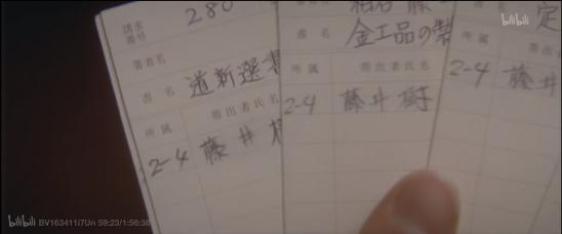 請求
番号 280
著者名
書名 道新選書
所属 帶出者氏名
2-4 藤井
書名 金工品の
所属 帶出者氏名
2-4 藤井樹
定
2-4 藤井
bilibili
bilibili BV163411i7Un 59:23/1:56:30